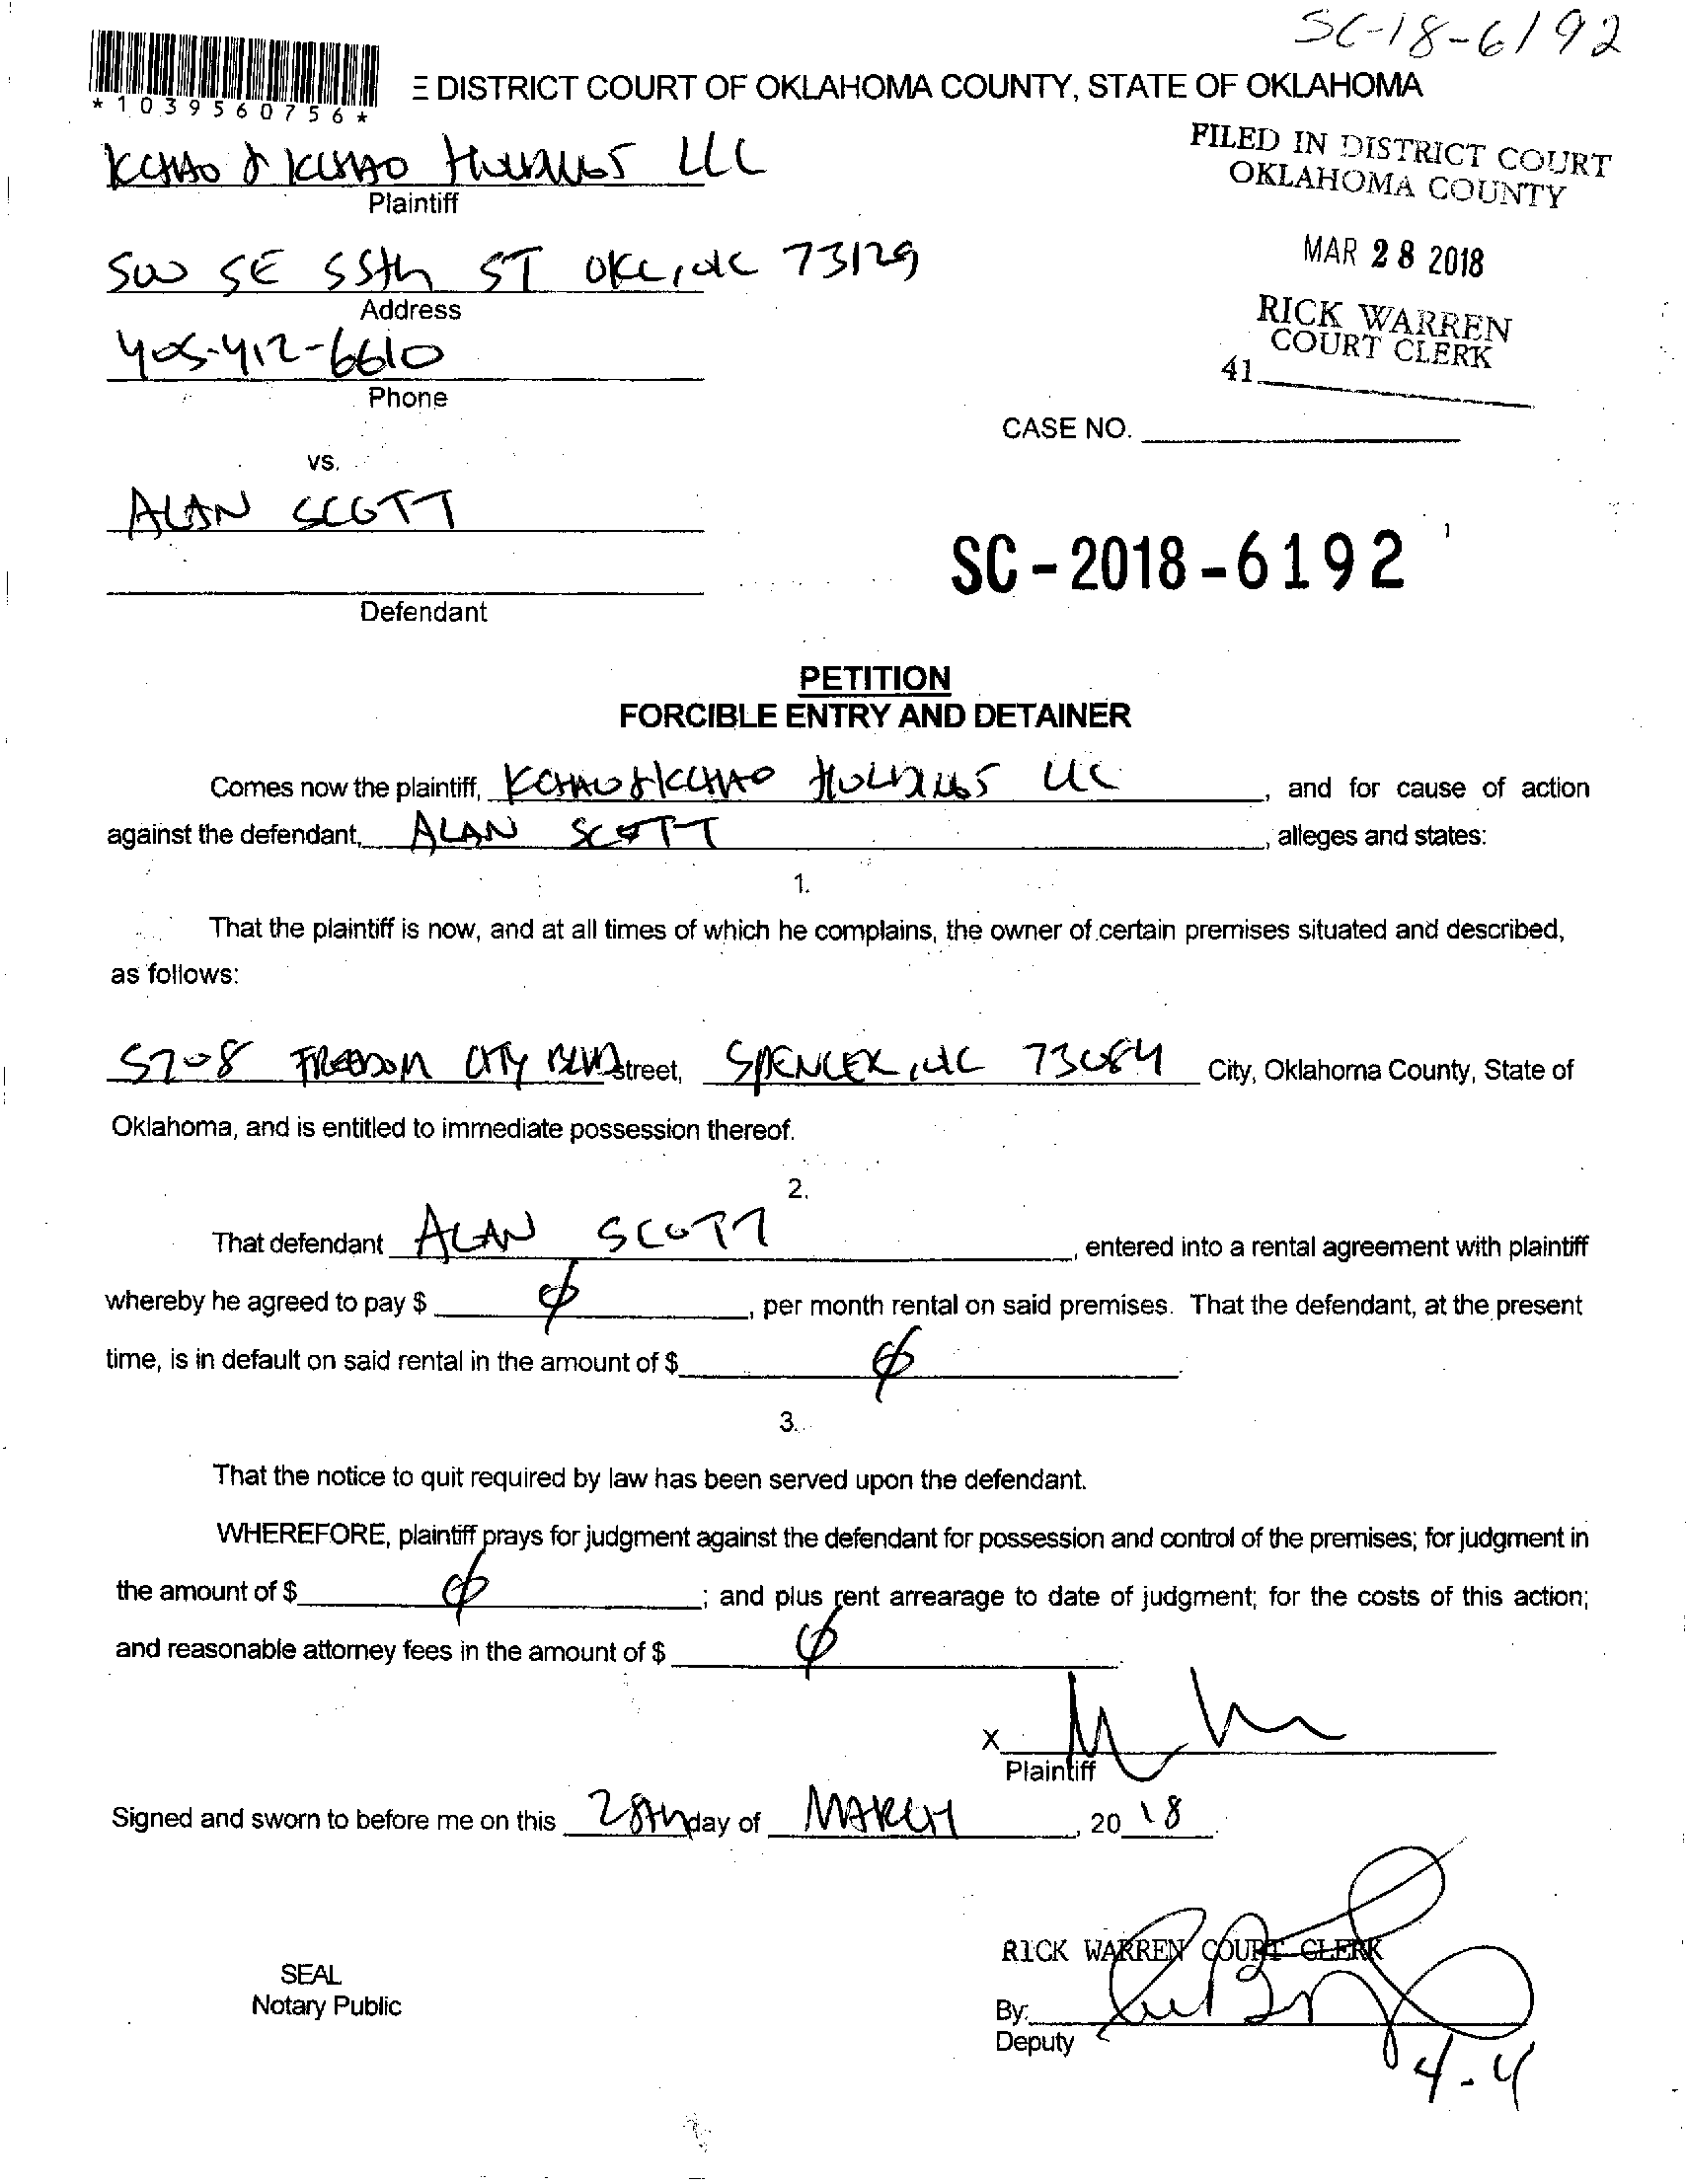 SC-18-6192
E DISTRICT COURT OF OKLAHOMA COUNTY, STATE OF OKLAHOMA
*1039560756*
FILED IN DISTRICT COURT
OKLAHOMA COUNTY
LLC
Plaintiff
MAR 28 2018
SE 55th ST OKC, OK 73129
Address
RICK WARREN
COURT CLERK
405-412-6610
41
Phone
CASE NO.
vs.
ALAN SCOTT
SC-2018-6192
Defendant
PETITION
FORCIBLE ENTRY AND DETAINER
Comes now the plaintiff, HOLDINGS LLC, and for cause of action
against the defendant, ALAN SCOTT, alleges and states:
1.
That the plaintiff is now, and at all times of which he complains, the owner of certain premises situated and described,
as follows:
5708 FREEDOM CITY BLVD street, SPENCER, OK 73084 City, Oklahoma County, State of
Oklahoma, and is entitled to immediate possession thereof.
2.
That defendant ALAN SCOTT, entered into a rental agreement with plaintiff
whereby he agreed to pay $ ∅, per month rental on said premises. That the defendant, at the present
time, is in default on said rental in the amount of $ ∅.
3.
That the notice to quit required by law has been served upon the defendant.
WHEREFORE, plaintiff prays for judgment against the defendant for possession and control of the premises; for judgment in
the amount of $ ∅; and plus rent arrearage to date of judgment; for the costs of this action;
and reasonable attorney fees in the amount of $ ∅
X
Plaintiff
Signed and sworn to before me on this 28th day of MARCH, 20 18.
RICK WARREN COURT CLERK
SEAL
Notary Public
By:
Deputy
4-4